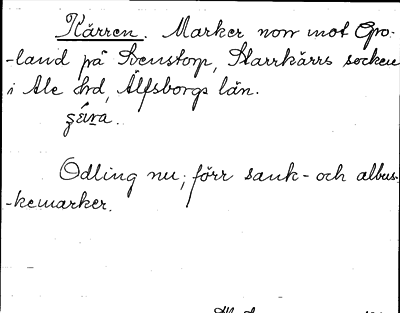 Kärren. Marker norr mot Gro-
-land på Svenstorp, Starrkärrs socken
i Ale hd, Älfsborgs län.
Odling nu; förr sank- och albus-
-kemarker.